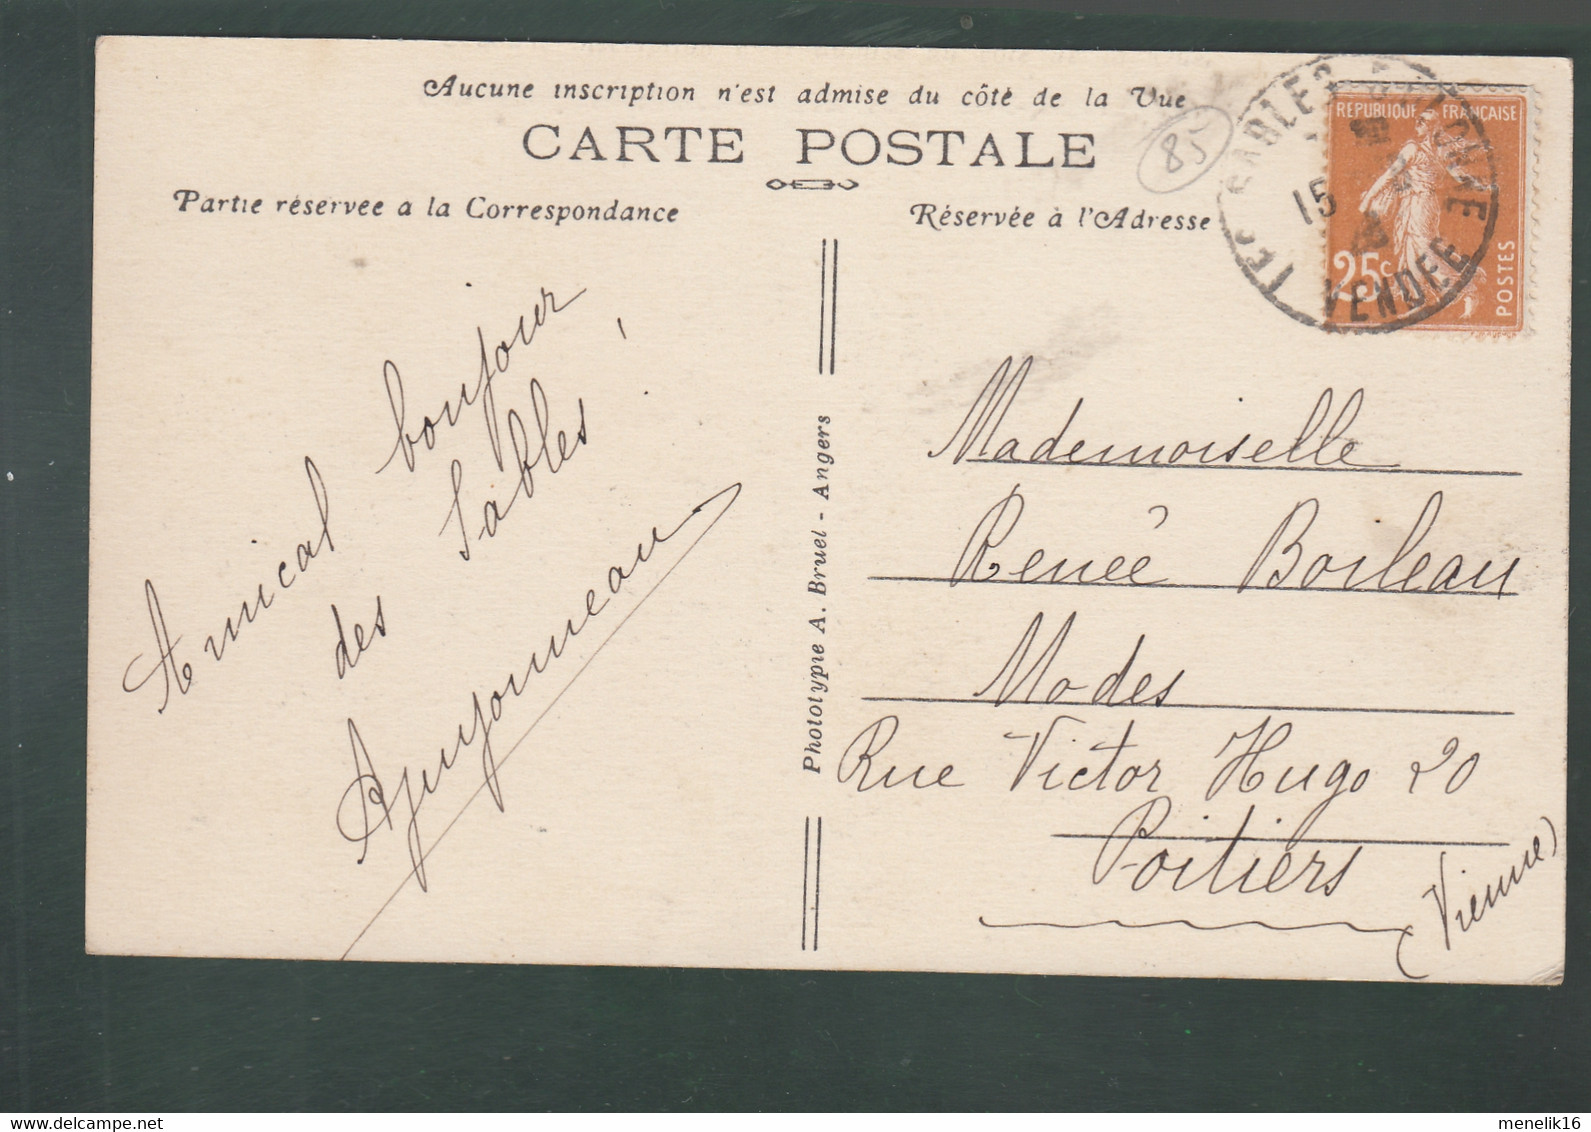 Aucune inscription n'est admise du côté de la Vue
CARTE POSTALE
Partie réservée a la Correspondance
Réservée à l'Adresse
85
REPUBLIQUE FRANÇAISE
25c
POSTES
LES SABLES D'OLONNE
15
VENDEE
Amical bonjour
des Sables,
Phototypie A. Bruel - Angers
Mademoiselle
Renée Boileau
Modes
Rue Victor Hugo 20
Poitiers
(Vienne)
menelik16